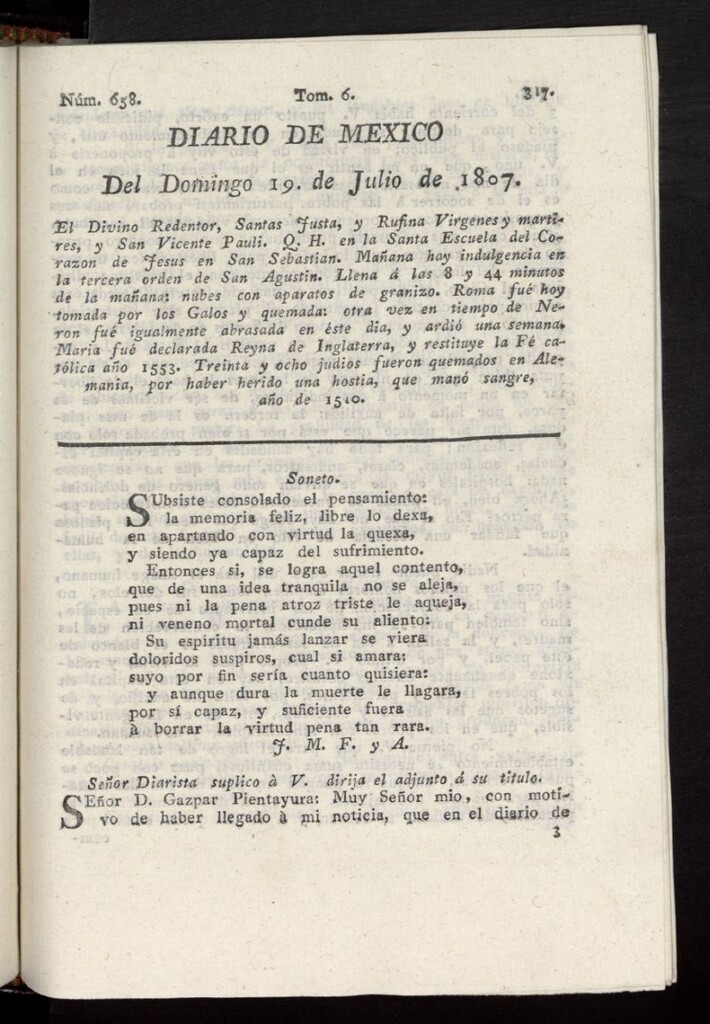 Núm. 658. Tom. 6. 317.
DIARIO DE MEXICO
Del Domingo 19. de Julio de 1807.
El Divino Redentor, Santas Justa, y Rufina Virgenes y marti-
res, y San Vicente Pauli. Q. H. en la Santa Escuela del Co-
razon de Jesus en San Sebastian. Mañana hay indulgencia en
la tercera orden de San Agustin. Llena á las 8 y 44 minutos
de la mañana: nubes con aparatos de granizo. Roma fué hoy
tomada por los Galos y quemada: otra vez en tiempo de Ne-
ron fué igualmente abrasada en éste dia, y ardió una semana.
Maria fué declarada Reyna de Inglaterra, y restituye la Fé ca-
tólica año 1553. Treinta y ocho judios fueron quemados en Ale-
mania, por haber herido una hostia, que manó sangre,
año de 1510.
Soneto.
SUbsiste consolado el pensamiento:
la memoria feliz, libre lo dexa,
en apartando con virtud la quexa,
y siendo ya capaz del sufrimiento.
Entonces si, se logra aquel contento,
que de una idea tranquila no se aleja,
pues ni la pena atroz triste le aqueja,
ni veneno mortal cunde su aliento:
Su espiritu jamás lanzar se viera
doloridos suspiros, cual si amara:
suyo por fin sería cuanto quisiera:
y aunque dura la muerte le llagara,
por sí capaz, y suficiente fuera
à borrar la virtud pena tan rara.
J. M. F. y A.
Señor Diarista suplico à V. dirija el adjunto á su titulo.
SEñor D. Gazpar Pientayura: Muy Señor mio, con moti-
vo de haber llegado à mi noticia, que en el diario de
3